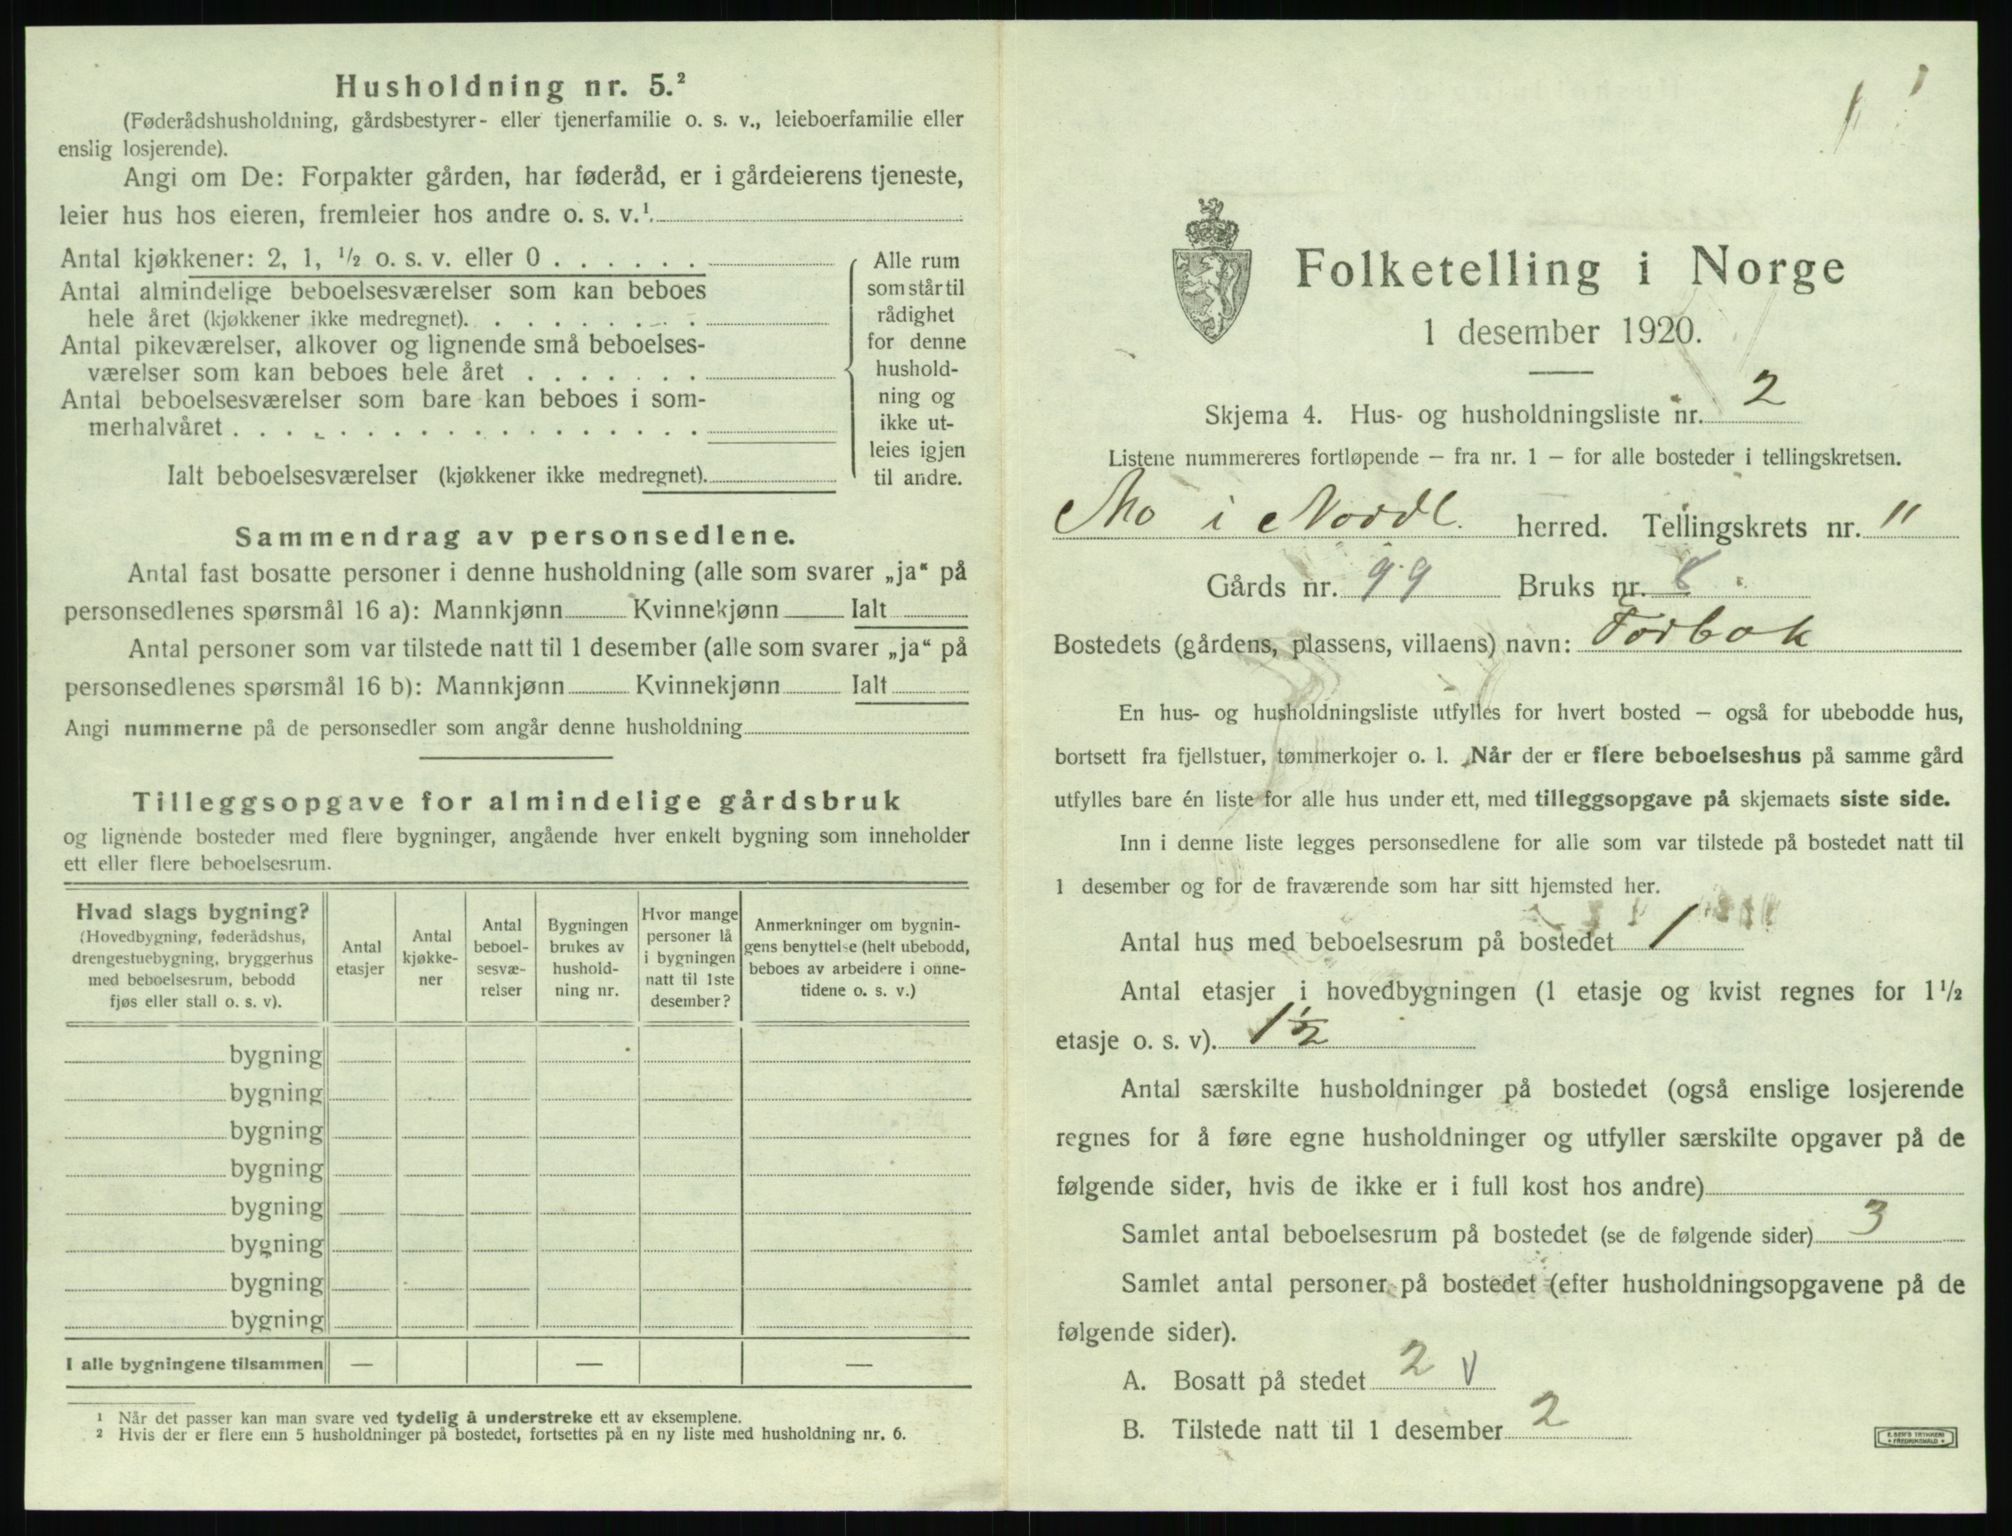 Husholdning nr. 5.²
(Føderådshusholdning, gårdsbestyrer- eller tjenerfamilie o. s. v., leieboerfamilie eller
enslig losjerende).
Angi om De: Forpakter gården, har føderåd, er i gårdeierens tjeneste,
leier hus hos eieren, fremleier hos andre o. s. v.¹
Antal kjøkkener: 2, 1, ½ o. s. v. eller 0 . . . . . .
Antal almindelige beboelsesværelser som kan beboes
hele året (kjøkkener ikke medregnet). . . . . . . . .
Antal pikeværelser, alkover og lignende små beboelses-
værelser som kan beboes hele året . . . . . . .
Antal beboelsesværelser som bare kan beboes i som-
merhalvåret . . . . . . . . . . . . . . . . . .
Ialt beboelsesværelser (kjøkkener ikke medregnet).
Alle rum
som står til
rådighet
for denne
hushold-
ning og
ikke ut-
leies igjen
til andre.
Sammendrag av personsedlene.
Antal fast bosatte personer i denne husholdning (alle som svarer „ja“ på
personsedlenes spørsmål 16 a): Mannkjønn Kvinnekjønn Ialt
Antal personer som var tilstede natt til 1 desember (alle som svarer „ja“ på
personsedlenes spørsmål 16 b): Mannkjønn Kvinnekjønn Ialt
Angi nummerne på de personsedler som angår denne husholdning
Tilleggsopgave for almindelige gårdsbruk
og lignende bosteder med flere bygninger, angående hver enkelt bygning som inneholder
ett eller flere beboelsesrum.
Hvad slags bygning?
(Hovedbygning, føderådshus,
drengestuebygning, bryggerhus
med beboelsesrum, bebodd
fjøs eller stall o. s. v).
Antal
etasjer
Antal
kjøkke-
ner
Antal
beboel-
sesvæ-
relser
Bygningen
brukes av
hushold-
ning nr.
Hvor mange
personer lå
i bygningen
natt til 1ste
desember?
Anmerkninger om bygnin-
gens benyttelse (helt ubebodd,
beboes av arbeidere i onne-
tidene o. s. v.)
bygning
bygning
bygning
bygning
bygning
bygning
bygning
bygning
I alle bygningene tilsammen — — —
¹ Når det passer kan man svare ved tydelig å understreke ett av eksemplene.
² Hvis der er flere enn 5 husholdninger på bostedet, fortsettes på en ny liste med husholdning nr. 6.
Folketelling i Norge
1 desember 1920.
Skjema 4. Hus- og husholdningsliste nr. 2
Listene nummereres fortløpende — fra nr. 1 — for alle bosteder i tellingskretsen.
Mo i Nordl. herred. Tellingskrets nr. 11
Gårds nr. 99 Bruks nr. 8
Bostedets (gårdens, plassens, villaens) navn: Forbak
En hus- og husholdningsliste utfylles for hvert bosted — også for ubebodde hus,
bortsett fra fjellstuer, tømmerkojer o. l. Når der er flere beboelseshus på samme gård
utfylles bare én liste for alle hus under ett, med tilleggsopgave på skjemaets siste side.
Inn i denne liste legges personsedlene for alle som var tilstede på bostedet natt til
1 desember og for de fraværende som har sitt hjemsted her.
Antal hus med beboelsesrum på bostedet 1
Antal etasjer i hovedbygningen (1 etasje og kvist regnes for 1½
etasje o. s. v). 1½
Antal særskilte husholdninger på bostedet (også enslige losjerende
regnes for å føre egne husholdninger og utfyller særskilte opgaver på de
følgende sider, hvis de ikke er i full kost hos andre)
Samlet antal beboelsesrum på bostedet (se de følgende sider) 3
Samlet antal personer på bostedet (efter husholdningsopgavene på de
følgende sider).
A. Bosatt på stedet 2 V
B. Tilstede natt til 1 desember 2